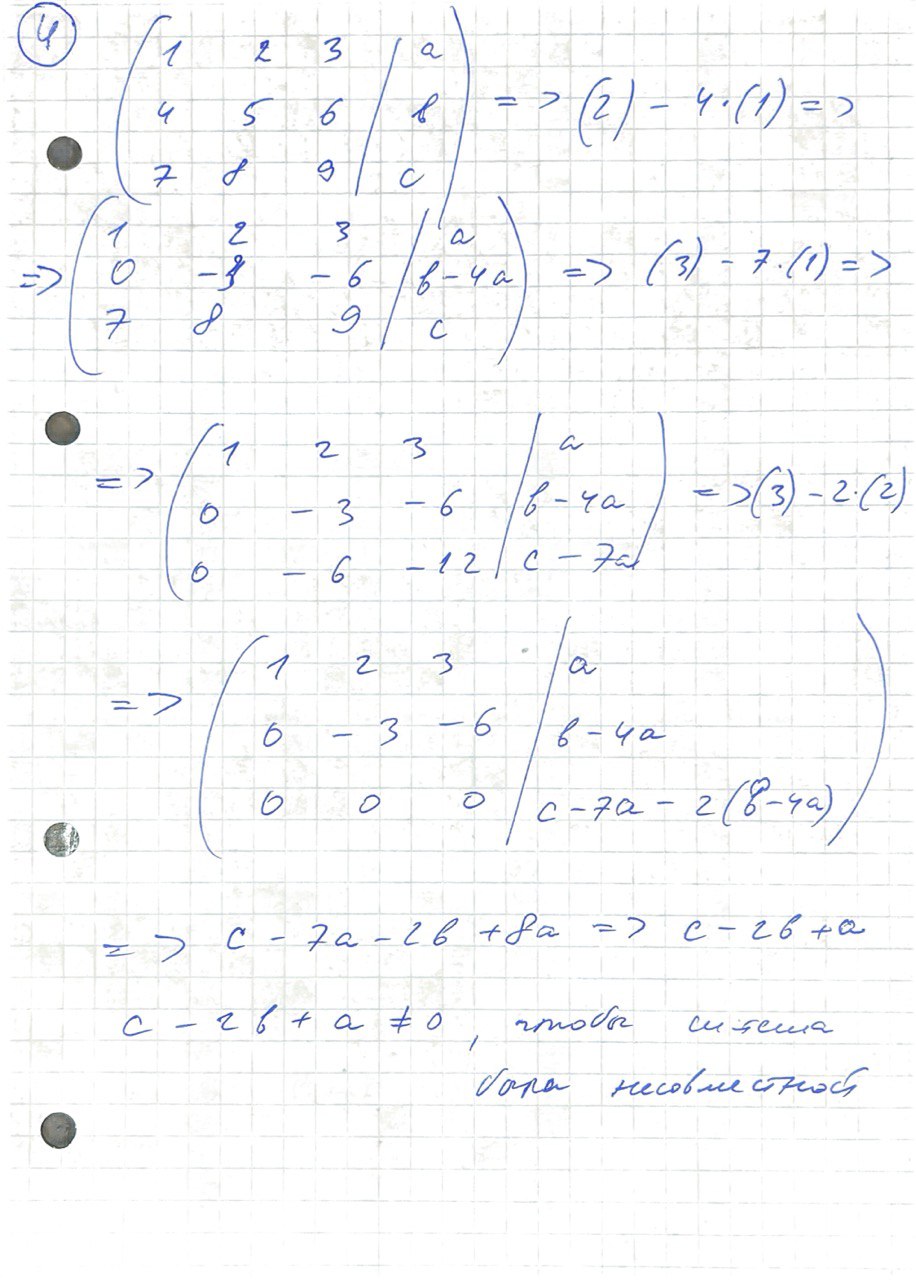 4
1 2 3 | a
4 5 6 | b => (2) - 4·(1) =>
7 8 9 | c
1 2 3 | a
=> 0 -3 -6 | b-4a => (3) - 7·(1) =>
7 8 9 | c
1 2 3 | a
=> 0 -3 -6 | b-4a => (3) - 2·(2)
0 -6 -12 | c - 7a
1 2 3 | a
=> 0 -3 -6 | b-4a
0 0 0 | c-7a - 2(b-4a)
=> c - 7a - 2b + 8a => c - 2b + a
c - 2b + a ≠ 0, чтобы система
была несовместной